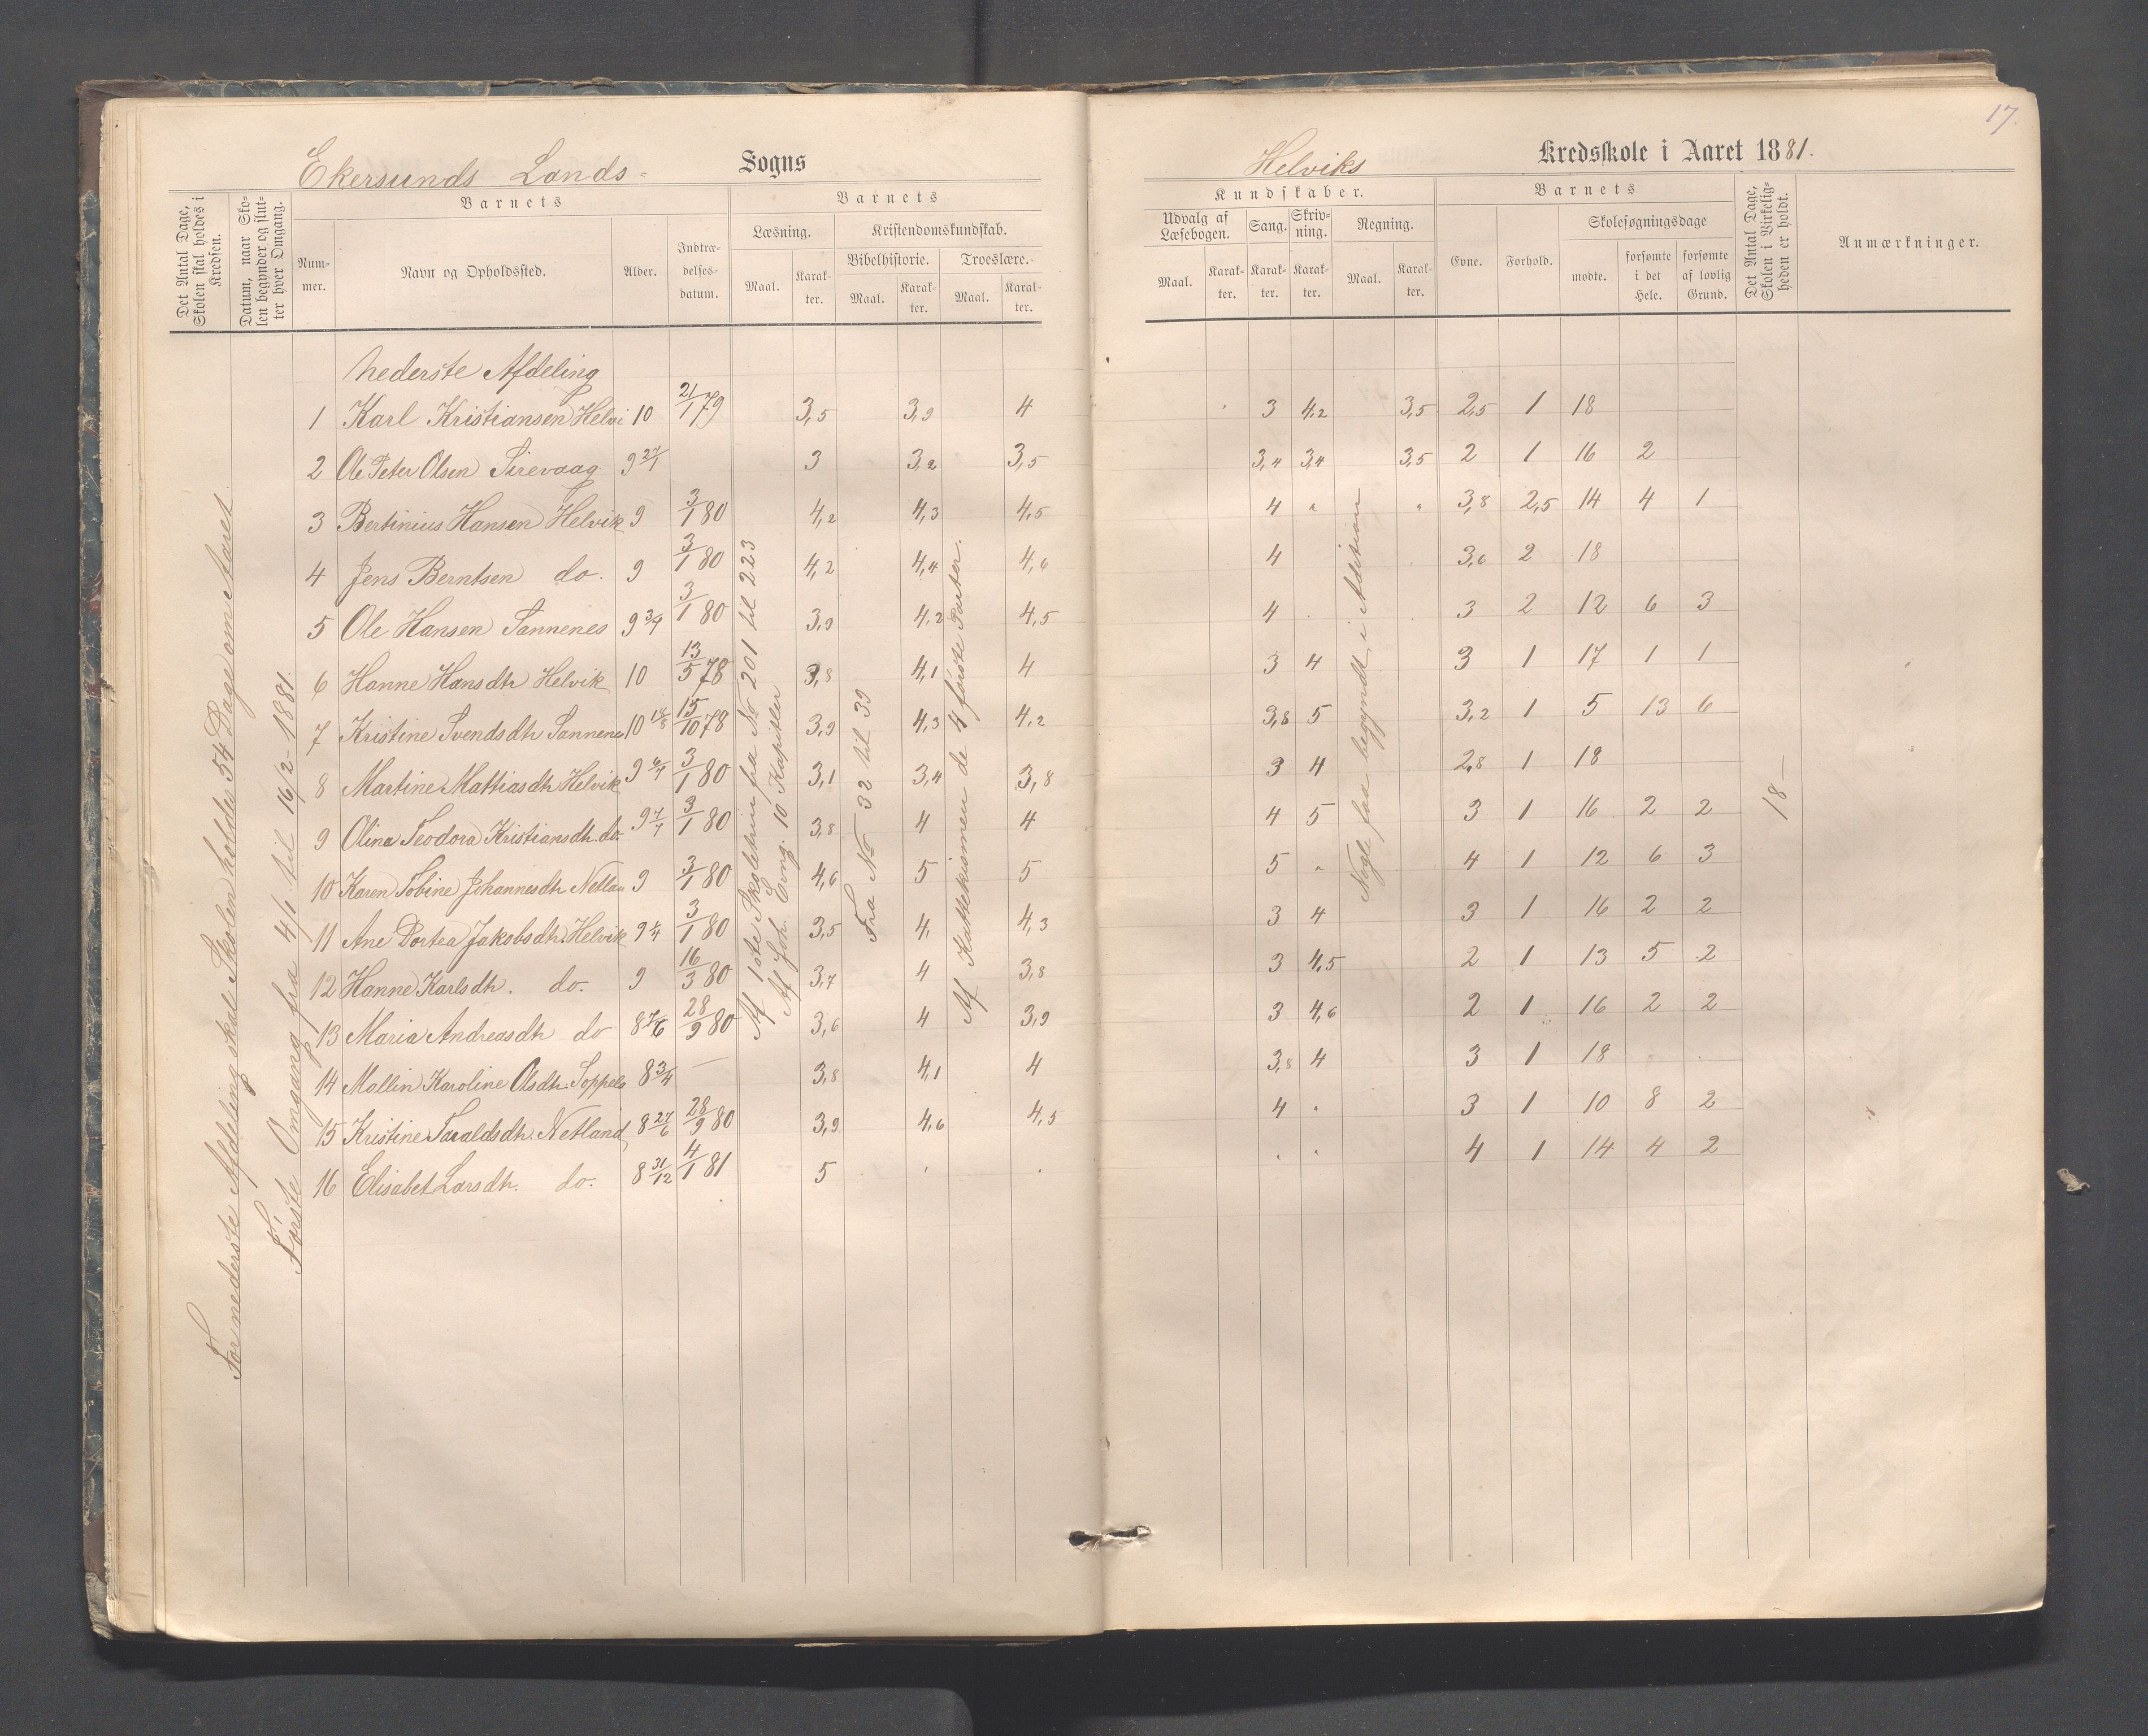 17.
Ekersunds Lands- Sogns
Helviks Kredsskole i Aaret 1881.
Det Antal Dage, Skolen skal holdes i Kredsen.
Datum, naar Skolen begynder og slutter hver Omgang.
Barnets
Nummer.
Navn og Opholdssted.
Alder.
Indtrædelsesdatum.
Barnets
Læsning.
Maal.
Karakter.
Kristendomskundskab.
Bibelhistorie.
Maal.
Karakter.
Troeslære.
Maal.
Karakter.
Kundskaber.
Udvalg af Læsebogen.
Maal.
Karakter.
Sang.
Karakter.
Skrivning.
Karakter.
Regning.
Maal.
Karakter.
Barnets
Evne.
Forhold.
Skolesøgningsdage
mødte.
forsømte i det Hele.
forsømte af lovlig Grund.
Det Antal Dage, Skolen i Virkeligheden er holdt.
Anmærkninger.
For nederste Afdeling skal Skolen holdes 54 Dage om Aaret.
Første Omgang fra 4/1 til 16/2 - 1881.
Nederste Afdeling
1 Karl Kristiansen Helvi 10 21/1 79 3,5 3,9 4 3 4,2 3,5 2,5 1 18
2 Ole Peter Olsen Sirevaag 9 27/1 3 3,2 3,5 3,4 3,4 3,5 2 1 16 2
3 Bertinius Hansen Helvik 9 3/1 80 4,2 4,3 4,5 4 " " 3,8 2,5 14 4 1
4 Jens Berntsen do. 9 3/1 80 4,2 4,4 4,6 4 3,6 2 18
5 Ole Hansen Sannenes 9 3/4 3/1 80 3,9 4,2 4,5 4 3 2 12 6 3
6 Hanne Hansdtr Helvik 10 13/5 78 3,8 4,1 4 3 4 3 1 17 1 1
7 Kristine Svendsdtr Sannenes 10 15/10 78 3,9 4,3 4,2 3,8 5 3,2 1 5 13 6
8 Martine Mattiasdtr Helvik 9 3/1 80 3,1 3,4 3,8 3 4 2,8 1 18
9 Oline Teodora Kristiansdtr. do. 9 3/1 80 3,8 4 4 4 5 3 1 16 2 2
10 Karen Tobine Johannesdtr Netlan 9 3/1 80 4,6 5 5 5 " 4 1 12 6 3
11 Ane Dortea Jakobsdtr. Helvik 9 3/1 80 3,5 4, 4,3 3 4 3 1 16 2 2
12 Hanne Karlsdtr. do. 9 16/3 80 3,7 4 3,8 3 4,5 2 1 13 5 2
13 Maria Andreasdtr do 8 7/6 28/9 80 3,6 4 3,9 3 4,6 2 1 16 2 2
14 Mallin Karoline Olsdtr. Soppela 8 3/4 — 3,8 4,1 4 3,8 4 3 1 18
15 Kristine Taraldsdtr. Netland 8 27/6 28/9 80 3,9 4,6 4,5 4 " 3 1 10 8 2
16 Elisabet Larsdtr. do. 8 31/12 4/1 81 5 4 1 14 4 2
Af 1ste Skoletrin fra No 201 til 223
Af Joh. Evng. 10 Kapitler
Fra No 32 til 39
Af Katekismen de 4 første Parter.
Nogle faa begyndt i Addition
18 —